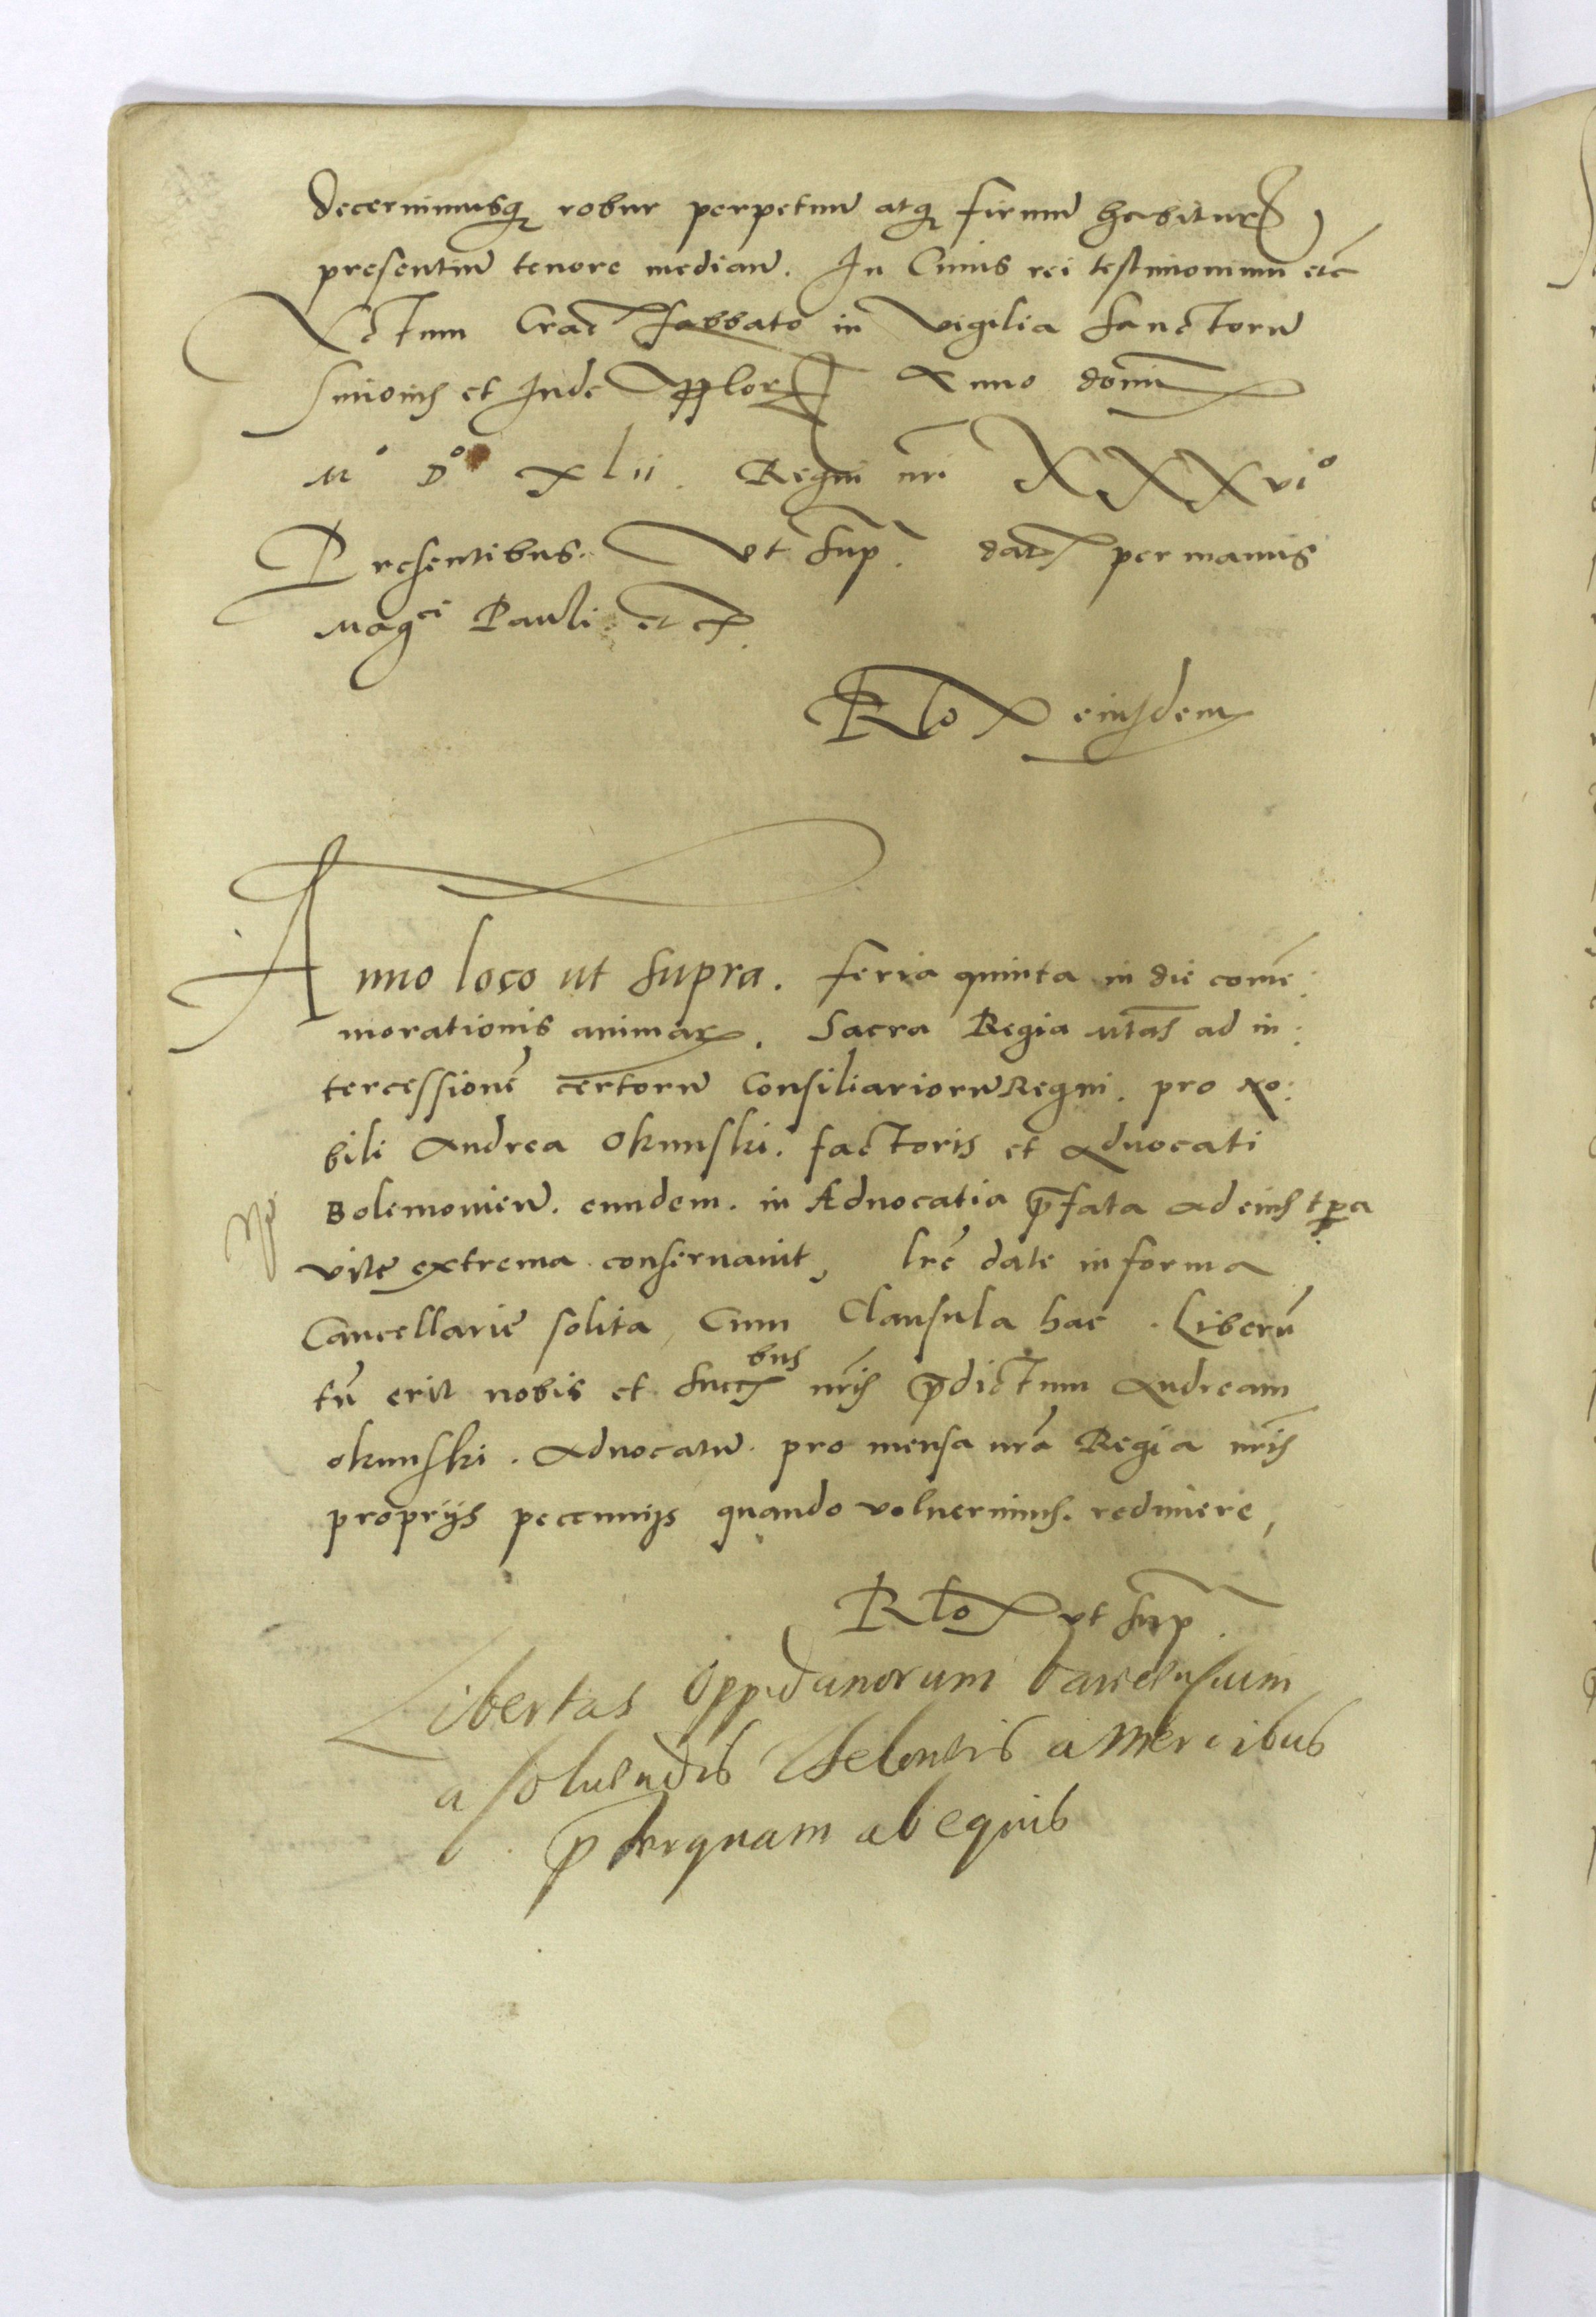 decernimusq₃ robur perpetuū atq₃ firmū habiturꝝ
presentiū tenore medianᷓ. In Cuius rei testimonium etc̄
Actum Crac̄ sabbato in vigilia sanctorū
Simonis et Jude Applorꝝ Anno domi
Mº Dº xlii. Regni nr̄i XXXviº
Presentibus. Vt sup̄. dat per manus
Magci Pauli et c̄.
Rlo eiusdem
Anno loco ut supra. feria quinta in die come᷑:
morationis animaꝝ. Sacra Regia Mtas ad in:
tercessione᷑ certorū Consiliariorū Regni. pro No:
bili Andrea Okunski. factoris et Aduocati
Bolemouien̄. eundem. in Aduocatia p̄fata ad eius tp̄a
vite extrema conseruauit, lr̄e date in forma
Cancellarie solita, Cum Clausula hac. Liberū
tn̄ erit nobis et succbus nr̄is p̄dictum Andream
okunski. Aduocatū. pro mensa nr̄a Regia nr̄is
proprijs pecunijs quando voluerimus. redimere,
Rlo vt sup̄.
Libertas Oppidanorum
a soluendis theloneis a Mercibus
p̄terquam ab equis